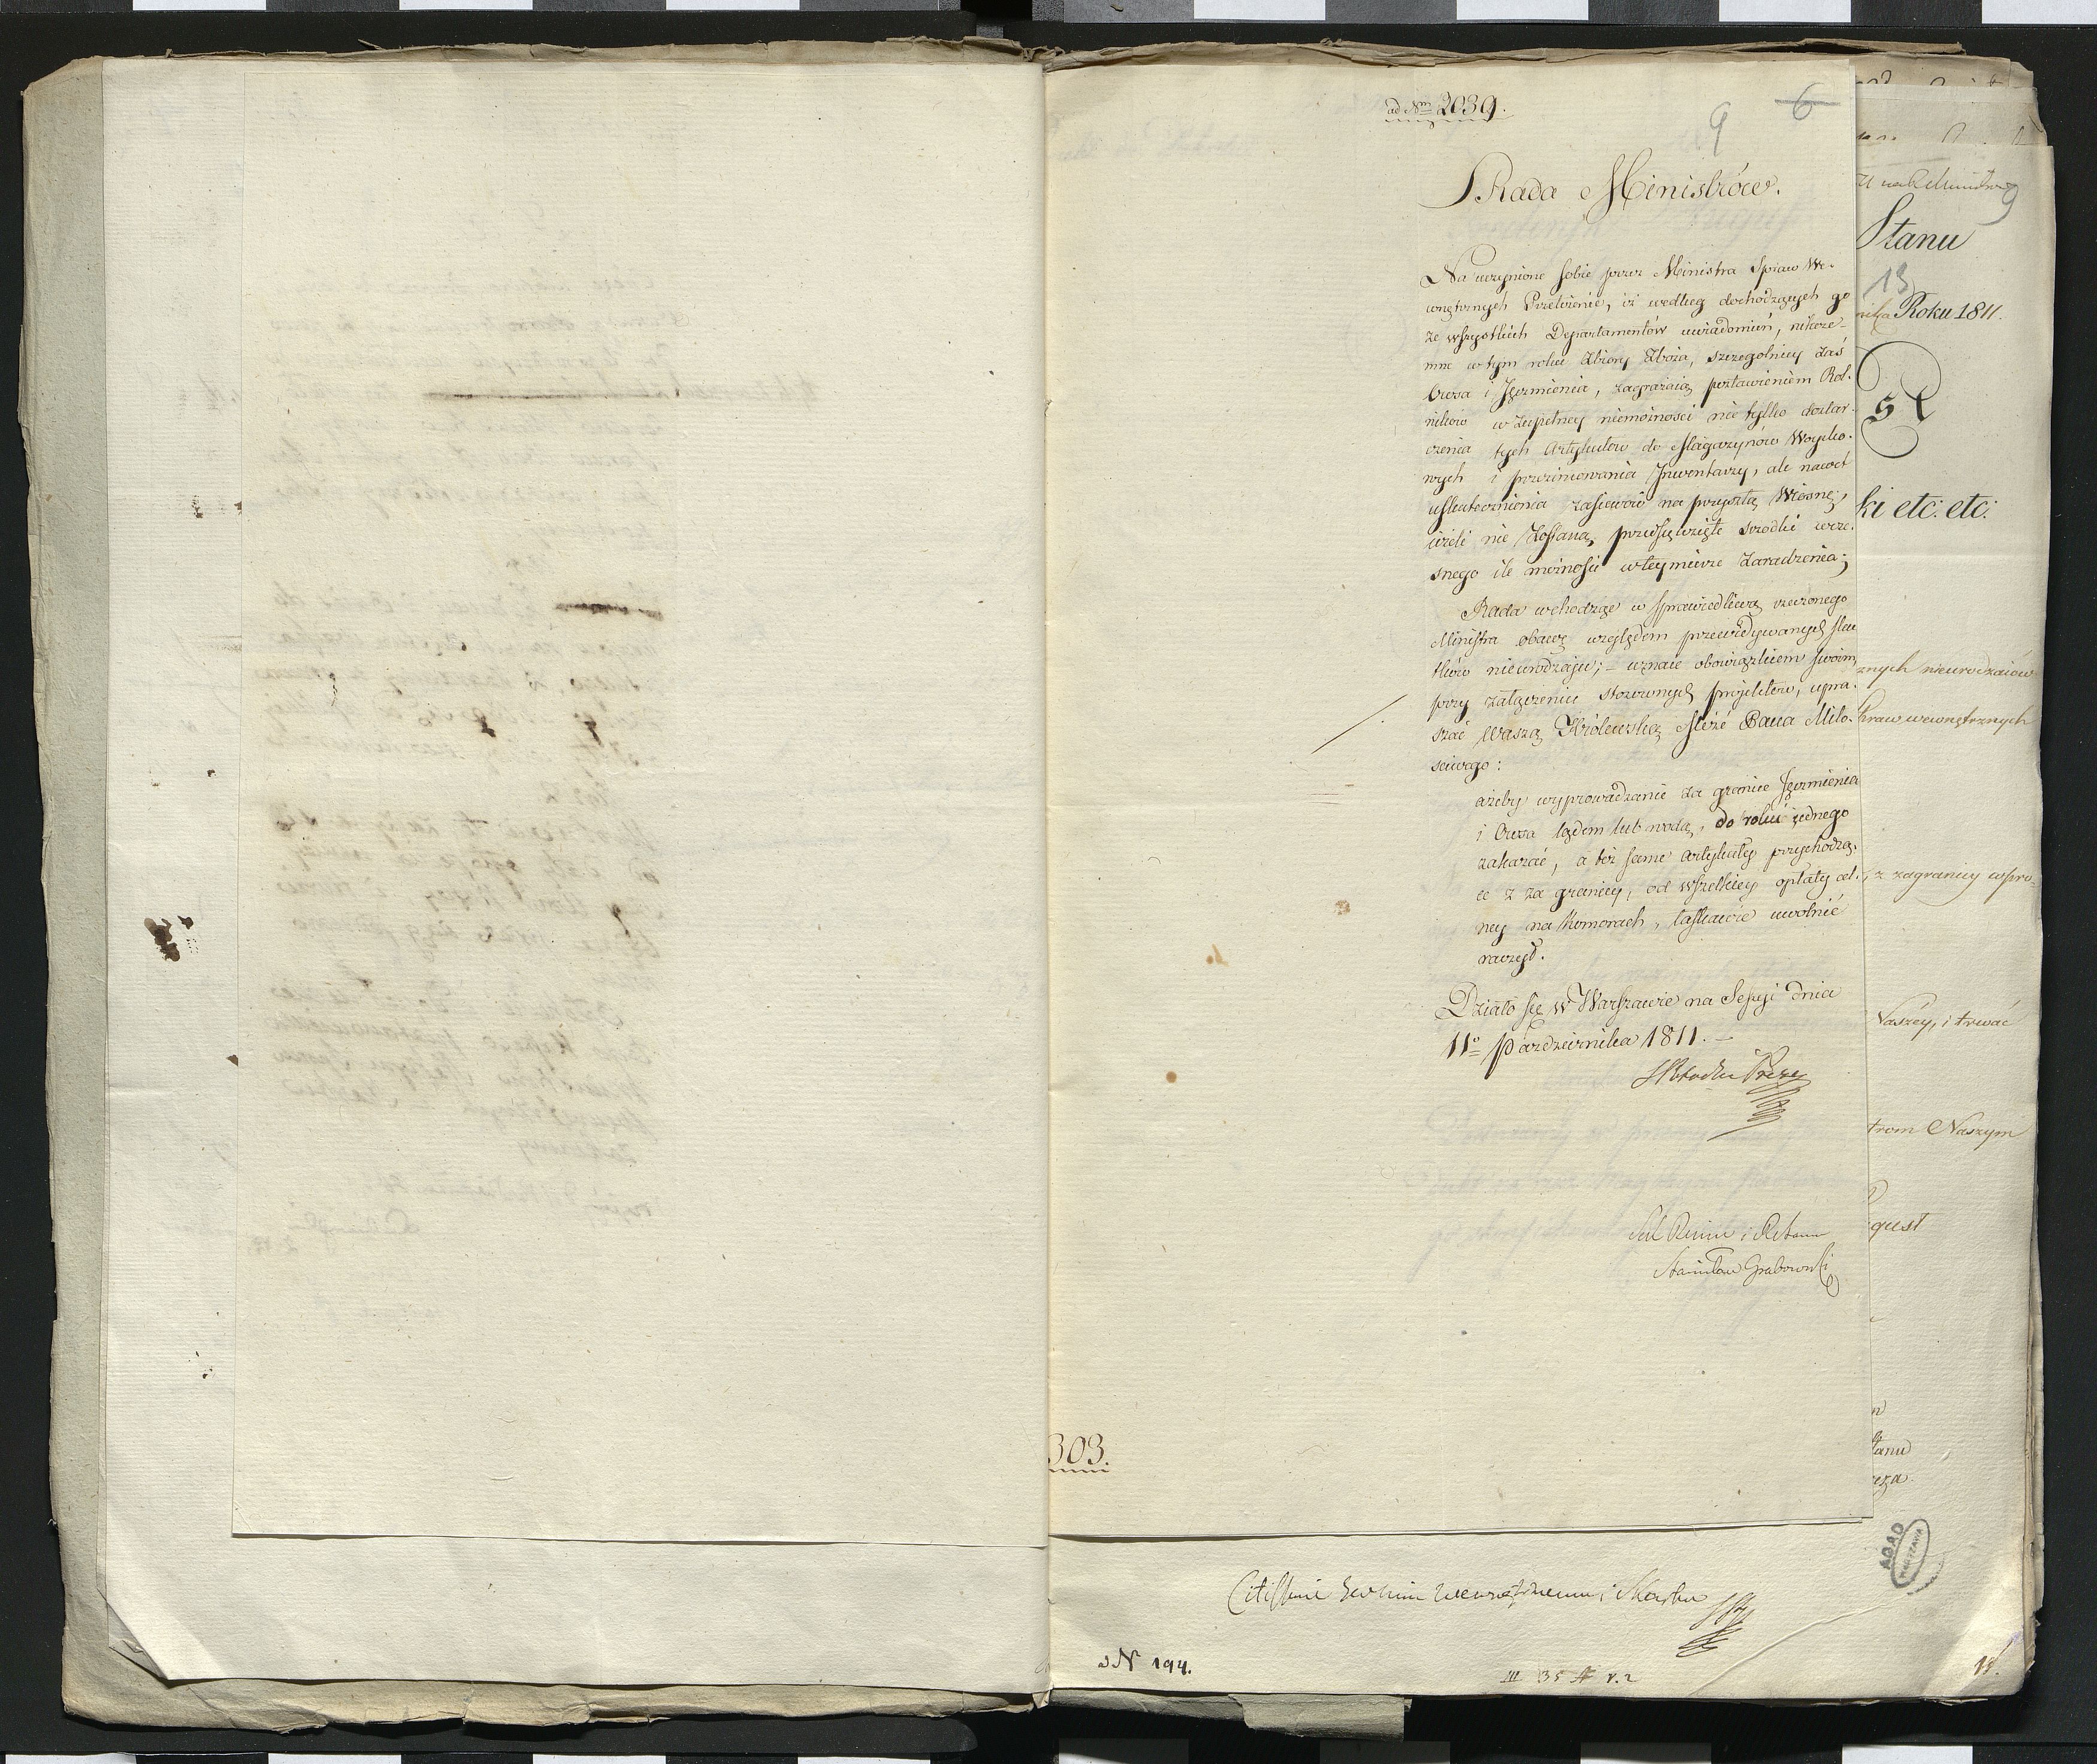 ad Nm 2039.
9 6
Rada Ministrów.
Na uczynione sobie przez Ministra Spraw We-
wnętrznych Przełożenie, iż według dochodzących go
ze wszystkich Departamentów uwiadomień, nikcze-
mne w tym roku Zbiory Zboża, szczegolniey zaś
Owsa i Jęczmienia, zagrażaią postawieniem Rol-
ników w zupełney niemożności nie tylko dostar-
czenia tych Artykułów do Magazynów Woysko-
wych i przezimowania Jnwentarzy, ale nawet
uskutecznienia zasiewów na przyszłą Wiosnę,
ieżeli nie Zostaną, przedsięwzięte srodki wcze-
snego ile możności w tey mierze zaradzenia;
Rada wchodząc w sprawiedliwą rzeczonego
Ministra obawę względem przewidywanych sku
tków nieurodzaju; – uznaie obowiązkiem swoim,
przy załączeniu stosownych projektów, upra-
szać Waszą Królewską Mość Pana Miło-
sciwego:
ażeby wyprowadzanie za granice Jęczmienia
i Owsa lądem lub wodą, do roku jednego
zakazać, a też same Artykuły przychodzą-
ce z za granicy, od wszelkiey opłaty cel-
ney na Komorach, łaskawie uwolnić
raczył.
Działo się w Warszawie na Sessyi dnia
11º Pazdziernika 1811. –
Prezes
Stanisław Grabowski
303.
wewnętrznemu i Skarbu
N 194.
III 35 v. 2
9
Stanu
13
Roku 1811.
ki etc: etc:
znych nieurodzaiów
Spraw wewnętrznych
z zagranicy wpro-
Naszéy, i trwać
trom Naszym
gust
tanu
AGAD
WARSZAWA